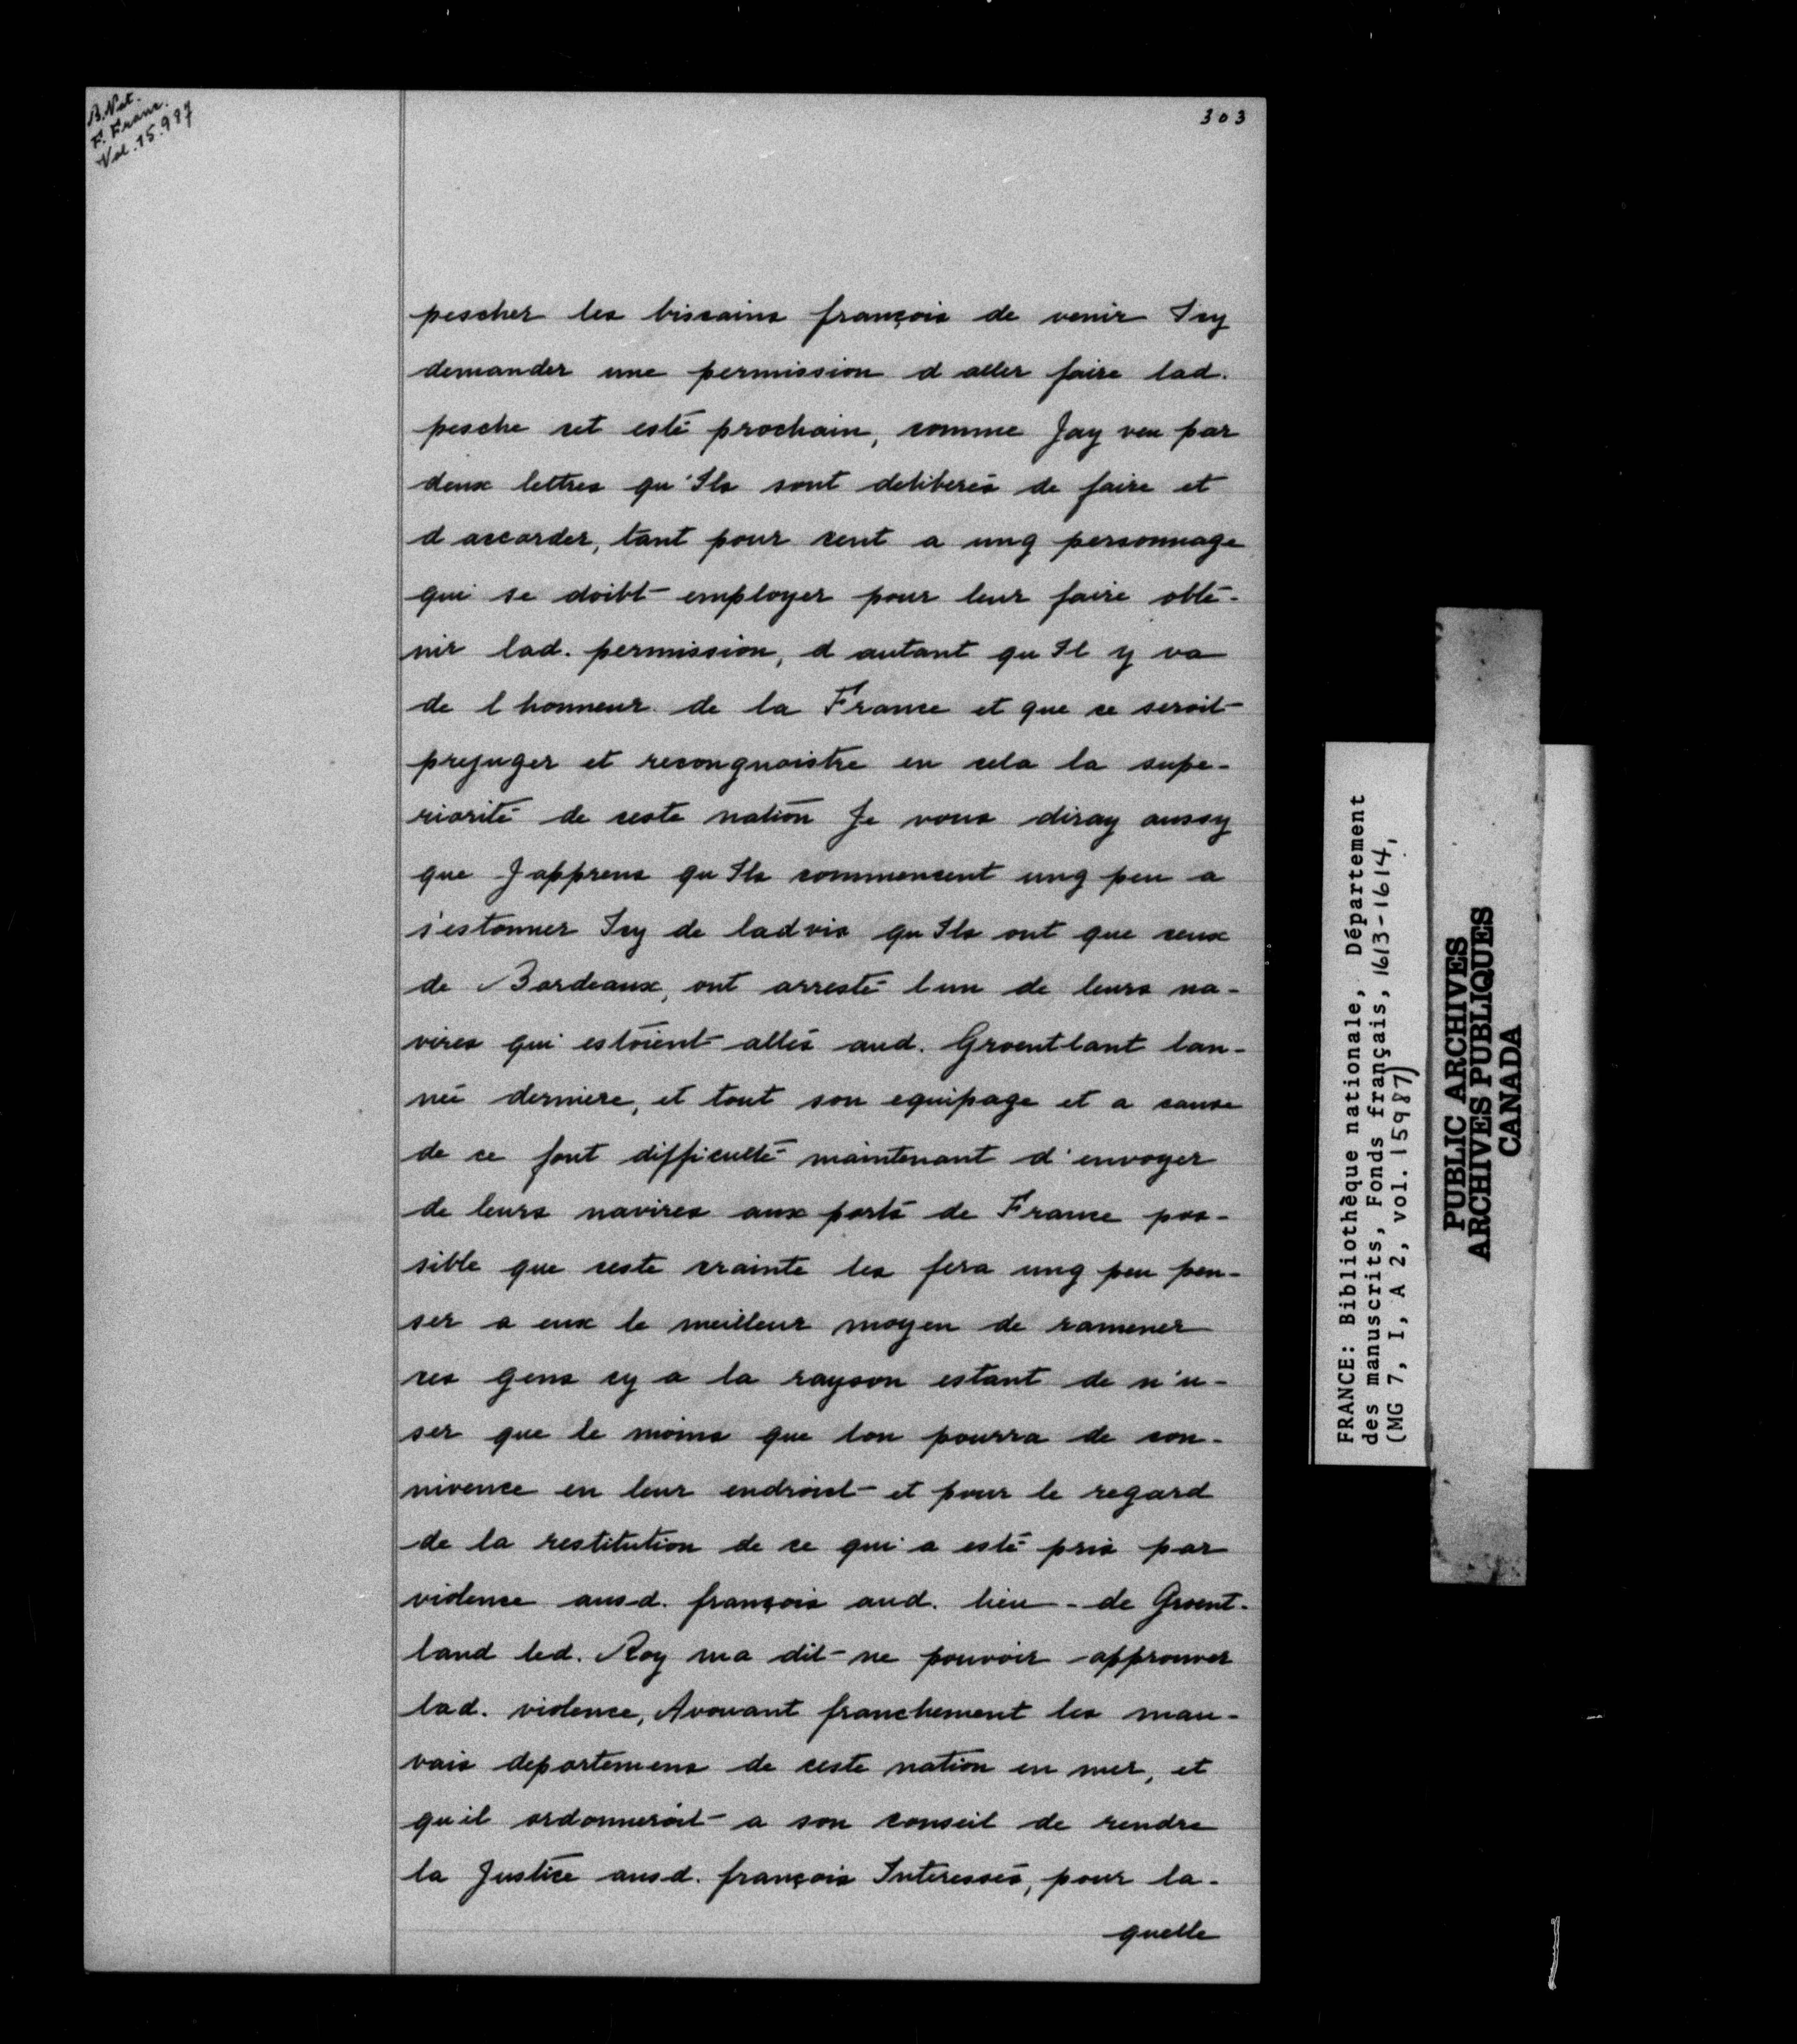 B. Nat.
F. Franc.
Vol. 15.987
303
pescher les biscains françois de venir Icy
demander une permission d aller faire lad.
pesche cet esté prochain, comme Jay veu par
deux lettres qu'Ils sont deliberés de faire et
d accorder, tant pour cent a ung personnage
qui se doibt employer pour leur faire obte-
nir lad. permission, d autant qu Il y va
de l honneur de la France et que ce seroit
prejuger et recongnoistre en cela la supe-
riorité de ceste nation Je vous diray aussy
que J apprens qu Ils commencent ung peu a
s'estonner Icy de ladvis qu Ils ont que ceux
de Bordeaux, ont arresté l un de leurs na-
vires qui estoient allés aud. Groentlant lan-
née derniere, et tout son equipage et a cause
de ce font difficulté maintenant d'envoyer
de leurs navires aux ports de France pos-
sible que ceste crainte les fera ung peu pen-
ser a eux le meilleur moyen de ramener
ces gens cy a la rayson estant de n'u-
ser que le moins que lon pourra de con-
nivence en leur endroict et pour le regard
de la restitution de ce qui a esté pris par
violence ausd. françois aud. lieu - de Groent-
land led. Roy ma dit ne pouvoir approuver
lad. violence, Avouant franchement les mau-
vais departemens de ceste nation en mer, et
qu il ordonneroit a son conseil de rendre
la Justice ausd. françois Interessés, pour la-
quelle
FRANCE: Bibliothèque nationale, Département
des manuscrits, Fonds français, 1613-1614,
(MG 7, I, A 2, vol. 15987)
PUBLIC ARCHIVES
ARCHIVES PUBLIQUES
CANADA